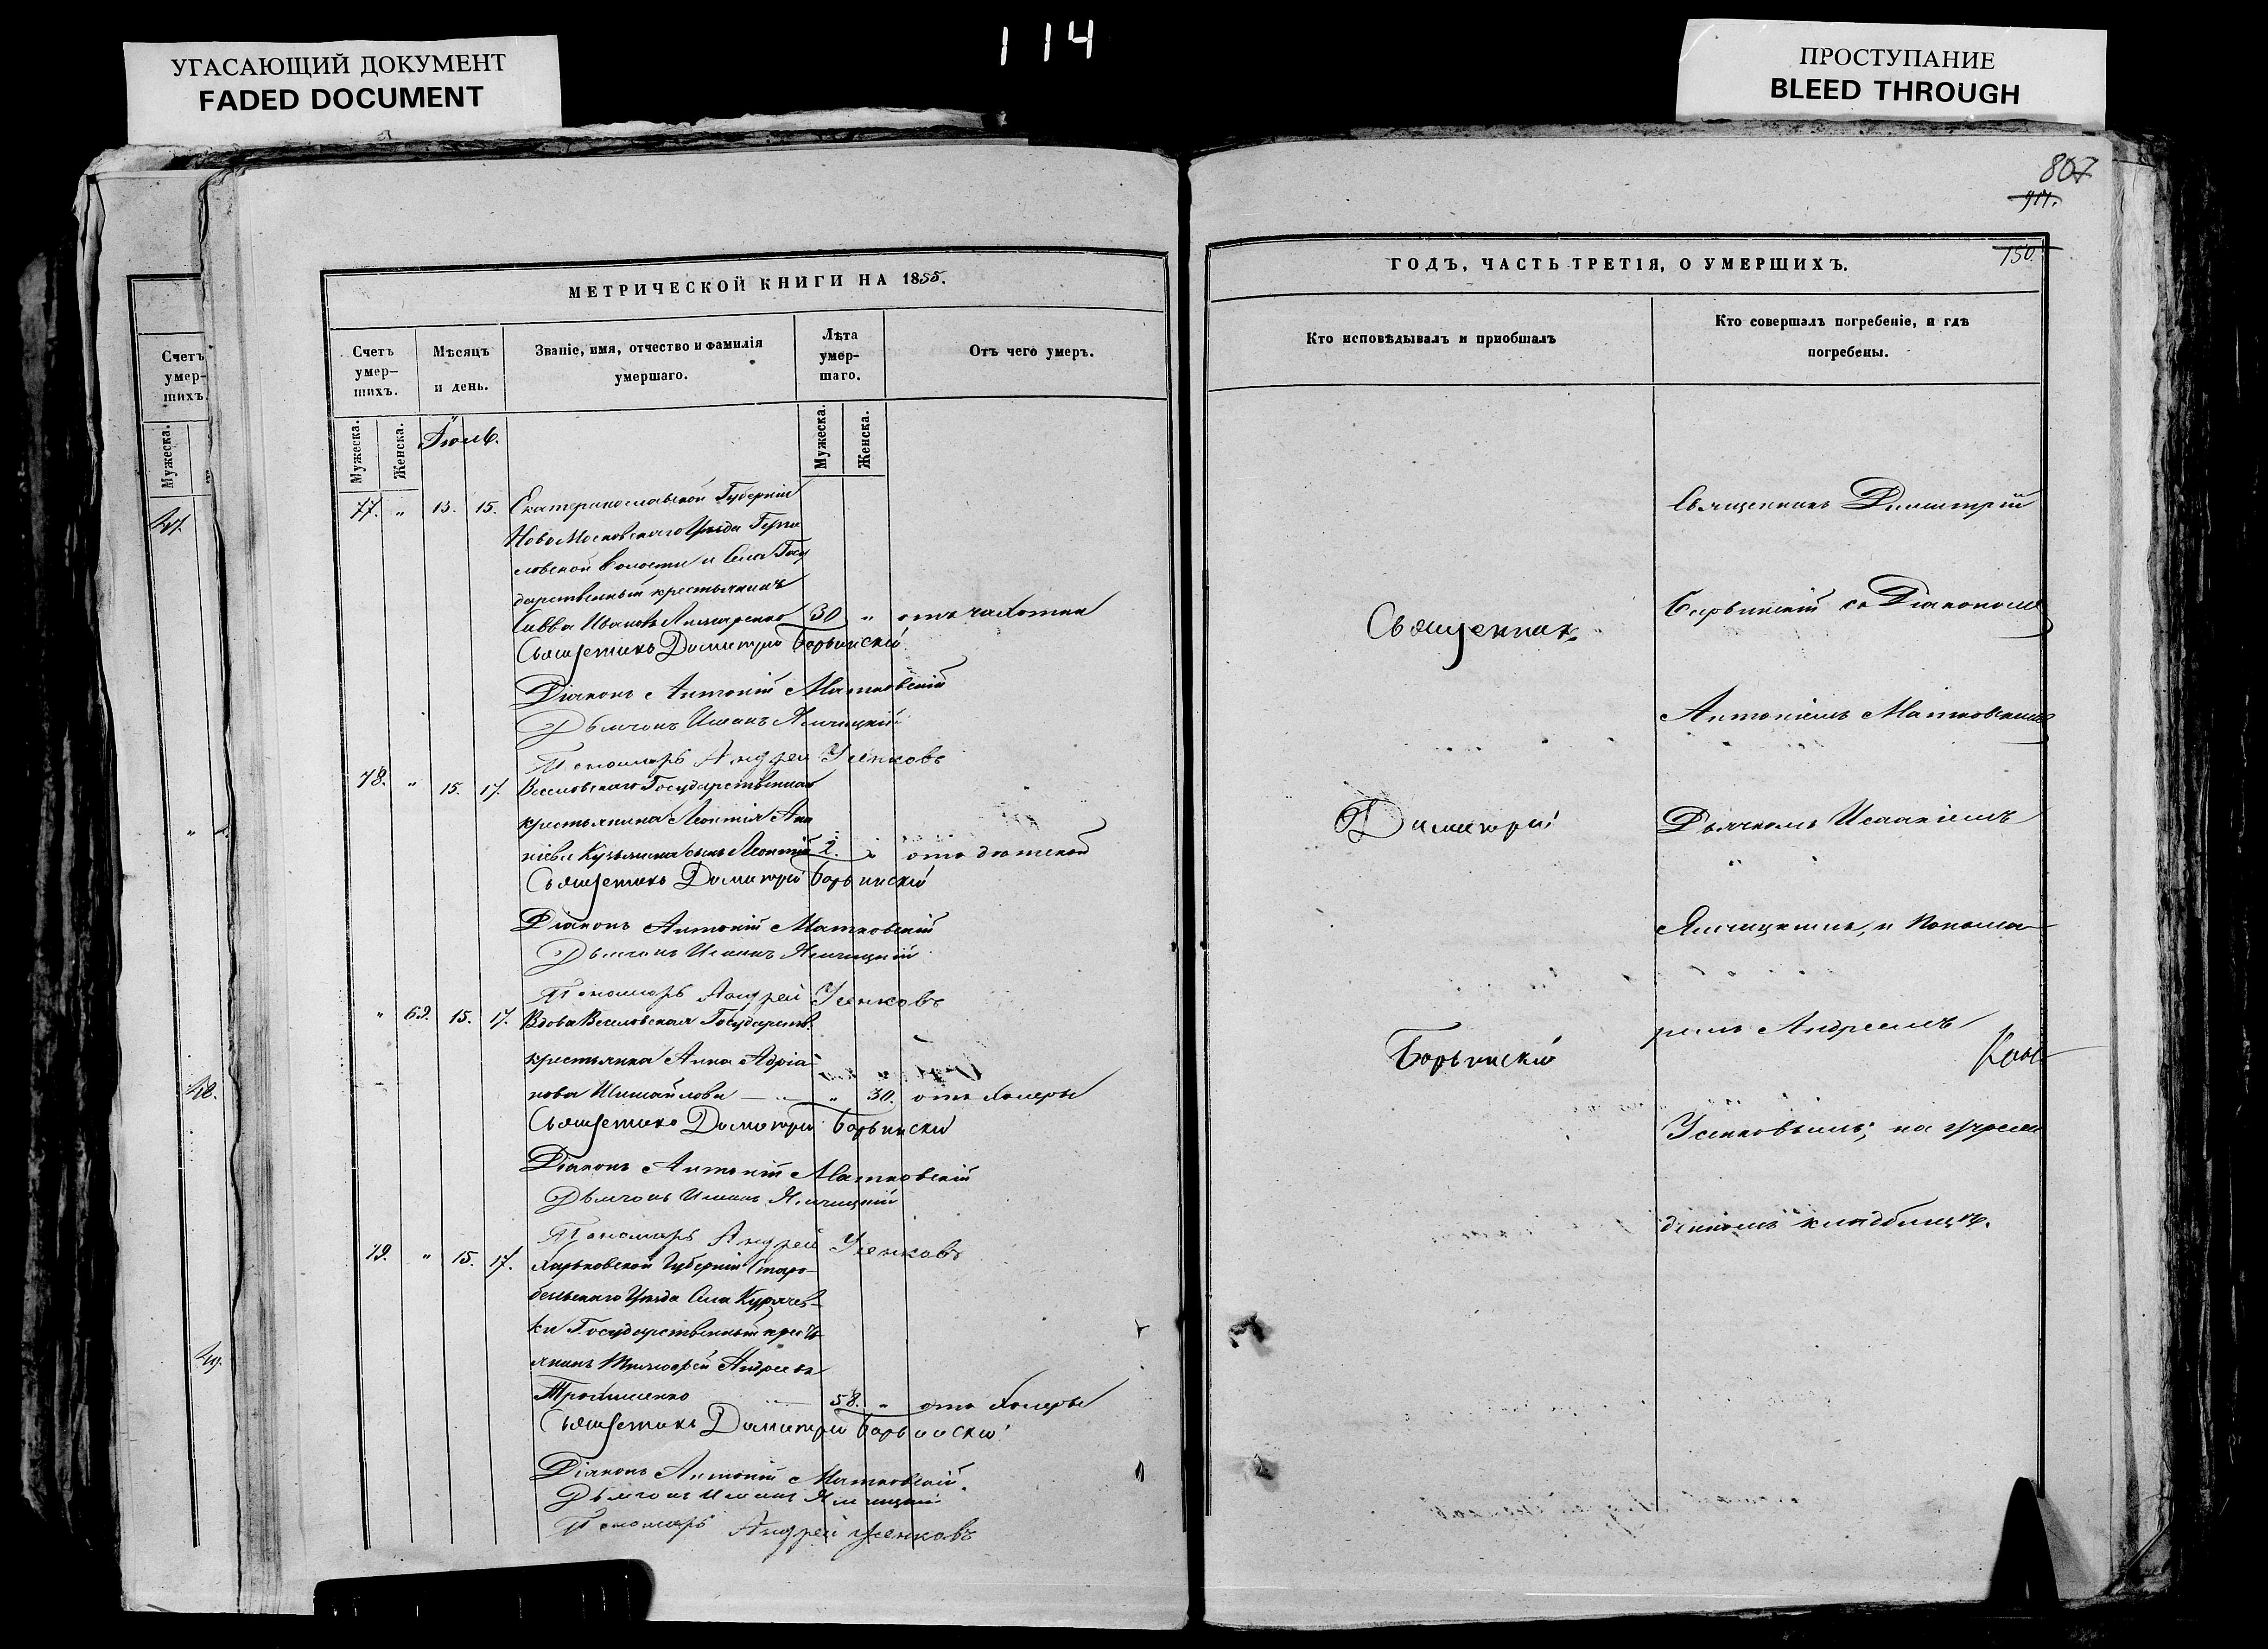 114
УГАСАЮЩИЙ ДОКУМЕНТ
FADED DOCUMENT
ПРОСТУПАНИЕ
BLEED THROUGH
Счетъ
умер-
шихъ.
Мужеска.
47.
48.
49.
МЕТРИЧЕСКОЙ КНИГИ НА 1855.
Счетъ умер-шихъ.
Мѣсяцъ и день.
Званіе, имя, отчество и фамилія умершаго.
Лѣта умер-шаго.
Отъ чего умеръ.
Мужеска.
Женска.
Іюль.
Мужеска.
Женска.
77. " 13. 15. Екатеринославской Губерніи
Новомосковскаго Уѣзда
волости и Села Госу
дарственный крестьянинъ
Савва Ивановъ 30 " отъ чахотки
Священникъ Димитрій Борвинскій
Діаконъ Антоній Матковскій
Дьячокъ Исаакъ Ямчицкій
Пономарь Андрей Усенковъ
78. " 15. 17. Веселовскаго Государственнаго
крестьянина Леонтія
Кузьмина сынъ Леонтій 2. " отъ дѣтской
Священникъ Димитрій Борвинскій
Діаконъ Антоній Матковскій
Дьячокъ Исаакъ Ямчицкій
Пономарь Андрей Усенковъ
" 69. 15. 17. Вдова Веселовская Государств.
крестьянка Анна Адріа-
нова Шимайлова " 30. отъ холеры
Священникъ Димитрій Борвинскій
Діаконъ Антоній Матковскій
Дьячокъ Исаакъ Ямчицкій
Пономарь Андрей Усенковъ
79. " 15. 17. Харьковской Губерніи Старо-
бельскаго Уѣзда Села Курячев-
ки Государственный кресть-
янинъ Тимофей Андреевъ
Трохименко 58. " отъ холеры
Священникъ Димитрій Борвинскій
Діаконъ Антоній Матковскій
Дьячокъ Исаакъ Ямчицкій
Пономарь Андрей Усенковъ
807
150.
ГОДЪ, ЧАСТЬ ТРЕТІЯ, О УМЕРШИХЪ.
Кто исповѣдывалъ и пріобщалъ
Кто совершалъ погребеніе, и гдѣ погребены.
Священникъ
Димитрій
Борвинскій
Священникъ Димитрій
Борвинскій съ Діакономъ
Антоніемъ Матковскимъ
Дьячкомъ Исаакіемъ
Ямчицкимъ, и Понома-
ремъ Андреемъ
Усенковымъ; на
кладбищѣ.